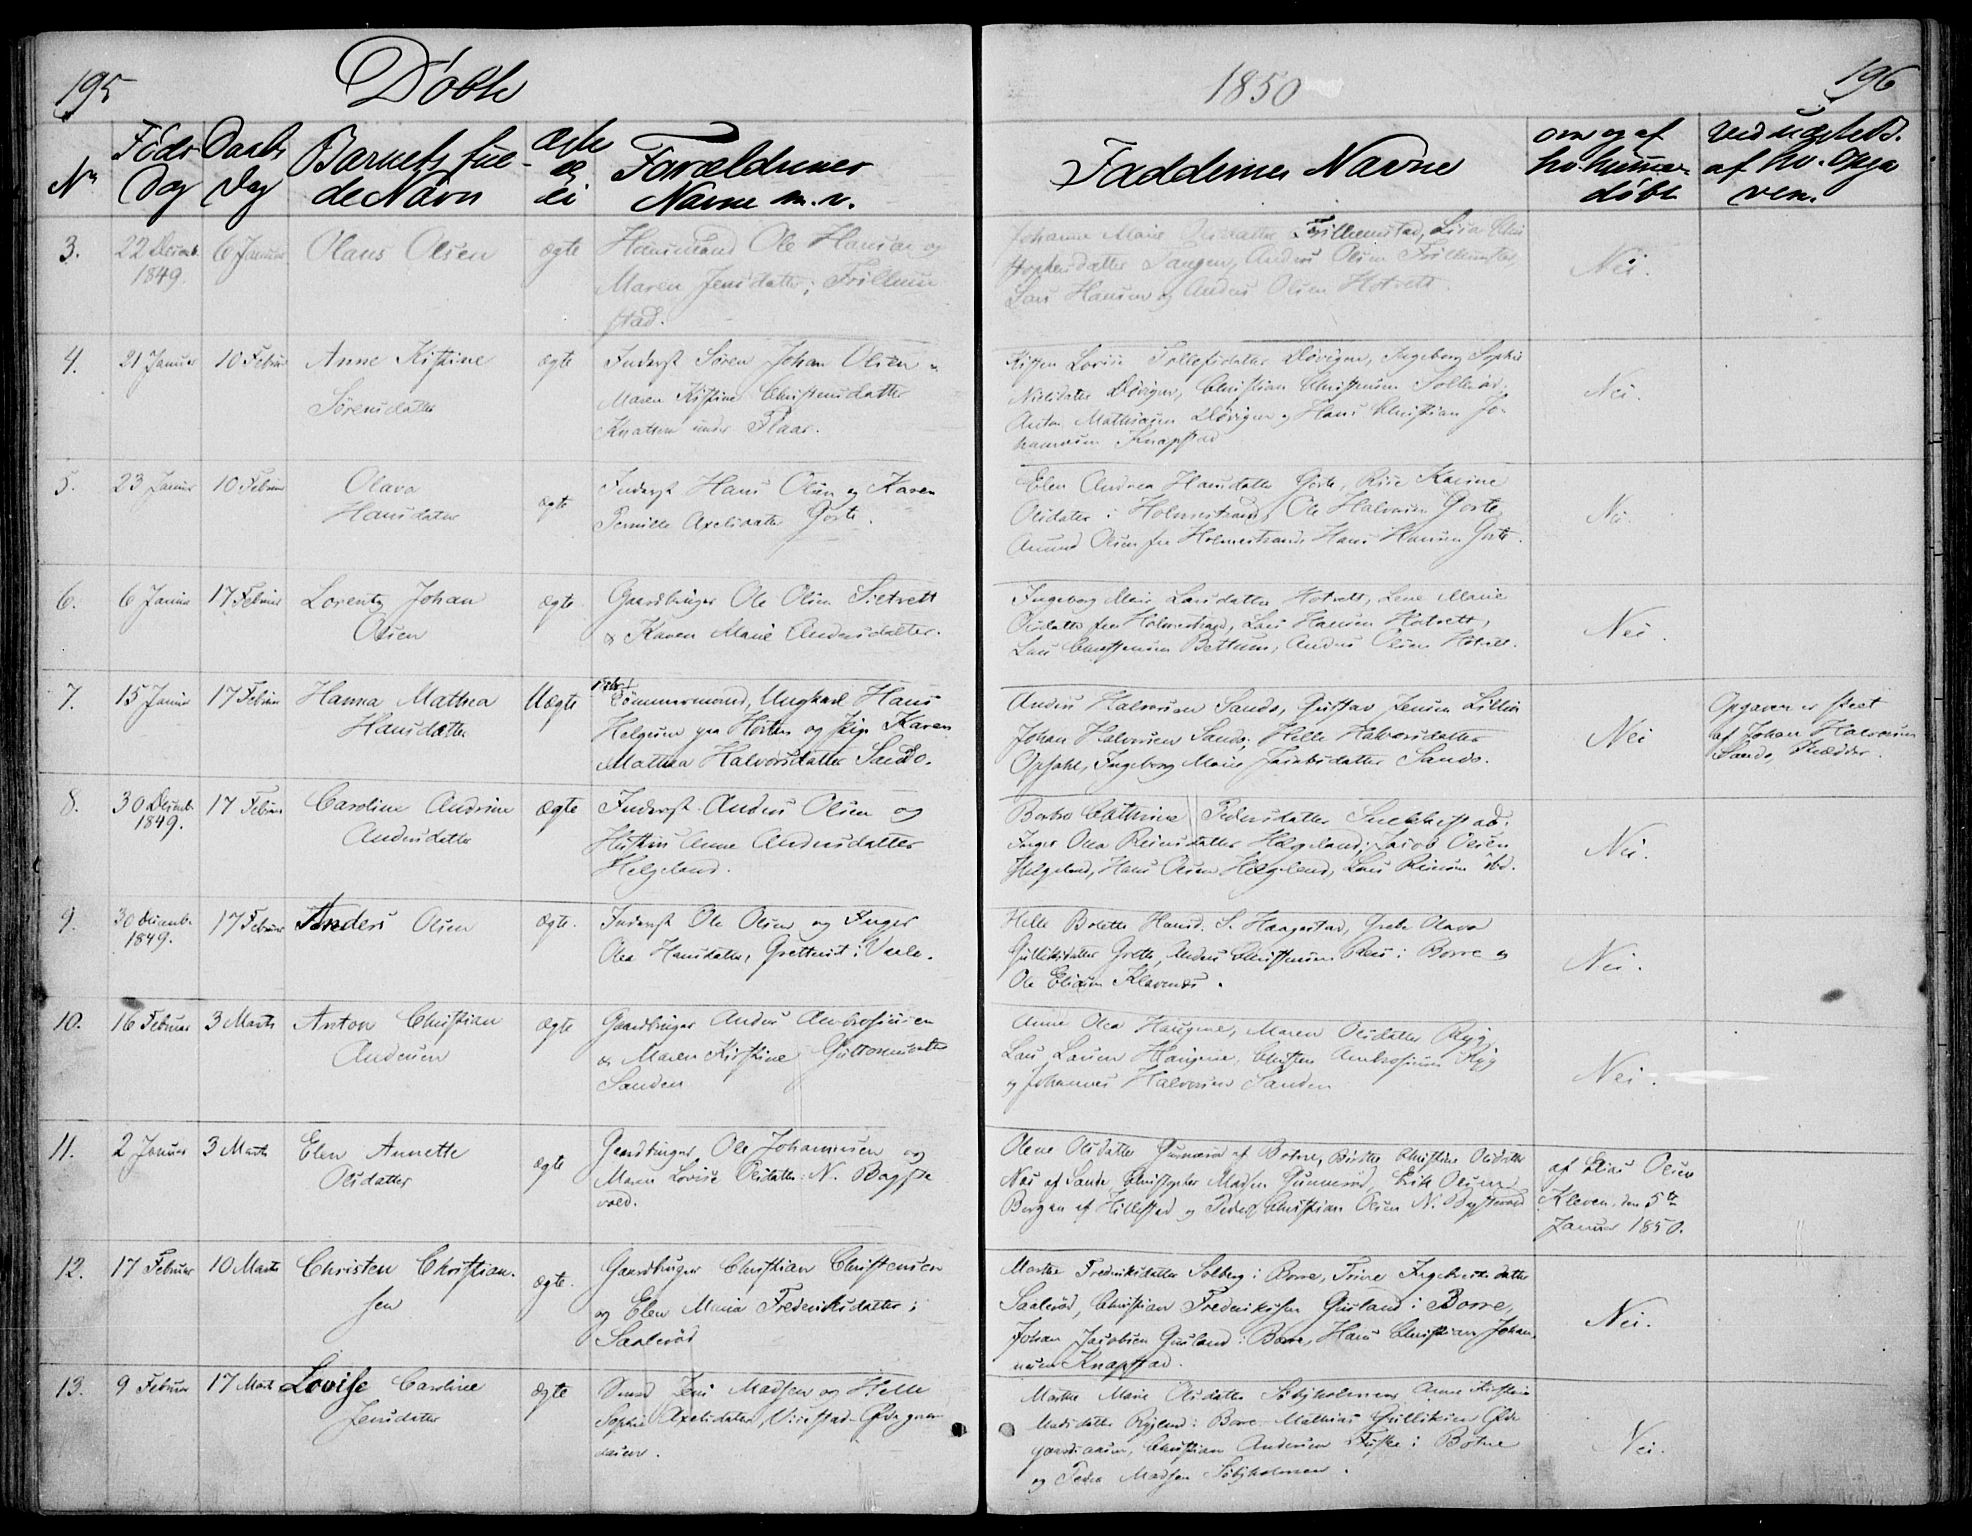 195
Döbte
1850
196
No
Föds Dag
Daabs Dag
Barnets fulde Navn
Ægte el. ei
Forældrenes Navne m.v.
Faddernes Navne
om og af hv. hjemmedöbt
ved uægte B. af hv. Opgaven.
3.
22 Decemb. 1849.
6 Januar
Olaus Olsen
ægte
Huusmand Ole Hansen og
Maren Jensdatter, Frillum
stad.
Johanne Marie Olsdatter Frillumstad, Lisa Chri
stophersdatter Langen, Anders Olsen Frillumstad,
Lars Hansen og Anders Olsen Hotvett.
Nei.
4.
21 Januar
10 Februar
Anne Kistine
Sörensdatter
ægte
Inderst Sören Johan Olsen
Maren Kistine Christensdatter
Knatten under Flaar.
Lovise Tollefsdatter Lövigen, Ingeborg Sophie
Nielsdatter Lövigen, Christian Christensen
Anton Mathisen Lövigen og Hans Christian Jo-
hannesen Knapstad
Nei.
5.
23 Januar
10 Februar
Olava
Hansdatter
ægte
Inderst Hans Olsen og Karen
Pernille Axelsdatter Gorte.
Elen Andrea Hansdatter Gorte, Karine
Olsdatter i Holmestrand, Ole Halvorsen Gorte,
Amund Olsen fra Holmestrand, Hans Hansen Gorte.
Nei.
6.
6 Januar
17 Februar
Lorentz Johan
Olsen
ægte
Gaardbruger Ole Olsen Sletvett
& Karen Marie Andersdatter.
Ingeborg Marie Larsdatter Hotvett, Lene Marie
Olsdatter fra Holmestrand, Lars Hansen Hotvett,
Lars Christensen Bettum, Anders Olsen Hotvett.
Nei.
7.
15 Januar
17 Februar
Hanna Mathea
Hansdatter
Uægte
Tömmermand, Ungkarl Hans
Helgesen paa Horten og Pige Karen
Mathea Halvorsdatter Sando.
Anders Halvorsen Sando, Gustav Jensen
Johan Halvorsen Sando, Helle Halvorsdatter
Opsahl, Ingeborg Marie Jacobsdatter Sando.
Nei
Opgaven er skeet
af Johan Halvorsen
Sando, Fadder.
8.
30 Decemb. 1849.
17 Februar
Caroline Andrine
Andersdatter
ægte
Inderst Anders Olsen og
Hustru Anne Andersdatter
Helgeland.
Berthe Cathrine Pedersdatter Snekkestad,
Inger Olea Reiersdatter Helgeland, Jacob Olsen
Helgeland, Hans Olsen Helgeland, Lars Reiersen ibd.
Nei.
9.
30 Decemb. 1849.
17 Februar
Anders Olsen
ægte.
Inderst Ole Olsen og Inger
Olea Hansdatter, i Vaale.
Helle Bolette Hansd. S. Haugestad, Olava
Gulliksdatter Grette, Anders Christensen i Borre og
Ole Eliasen Klevenes.
Nei.
10.
16 Februar
3 Marts
Anton Christian
Andersen
ægte
Gaardbruger Anders Ambrosiussen
og Maren Kirstine Guttormsdatter
Sanden
Anne Olea Haugene, Maren Olsdatter Ryg,
Lars Larsen Haugene, Christen Ambrosiussen Ryg
og Johannes Halvorsen Sanden
Nei.
11.
2 Januar
3 Marts
Elen Annette
Olsdatter
ægte
Gaardbruger Ole Johannesen og
Maren Lovise Olsdatter N. Bagste
vold.
Olene Olsdatter Gunneröd af Botne, Birthe Christine Olsdatter
Næs af Sande, Christopher Madsen Gunneröd, Erik Olsen
Bergan af Hillestad og Peder Christian Olsen N. Bagstevold
af Elias Olsen
Kleven, den 5te
Januar 1850.
12.
17 Februar
10 Marts
Christen Christian-
sen
ægte.
Gaardbruger Christian Christensen
og Elen Maria Frederiksdatter,
Saaleröd
Marthe Frederiksdatter Solberg i Borre, Trine Ingebretsdatter
Saaleröd, Christian Frederiksen Guuland i Borre,
Johan Jacobsen Guuland i Borre, Hans Christian Johan-
nesen Knapstad.
Nei.
13.
9 Februar
17 Marts
Lovise Caroline
Jensdatter
ægte
Jens Madsen og Helle
Sophie Axelsdatter, Virestad-Ödegaar
dene.
Marthe Marie Olsdatter Anne Kirstine
Madsdatter i Borre, Mathias Gulliksen Öde
gaardene, Christian Andersen i Botne
og Peder Madsen
Nei.